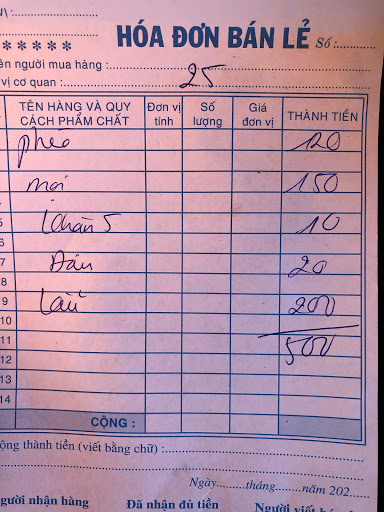 HÓA ĐƠN BÁN LẺ Số:
ên người mua hàng :
vị cơ quan : 25
TÊN HÀNG VÀ QUY CÁCH PHẨM CHẤT Đơn vị tính Số lượng Giá đơn vị THÀNH TIỀN
phèo 120
150
5 Khăn 5 10
6
7 20
8
9 Lẩu 200
10
11 500
12
13
14
CỘNG :
ộng thành tiền (viết bằng chữ) :
Ngày.........tháng.........năm 202
gười nhận hàng Đã nhận đủ tiền Người viết